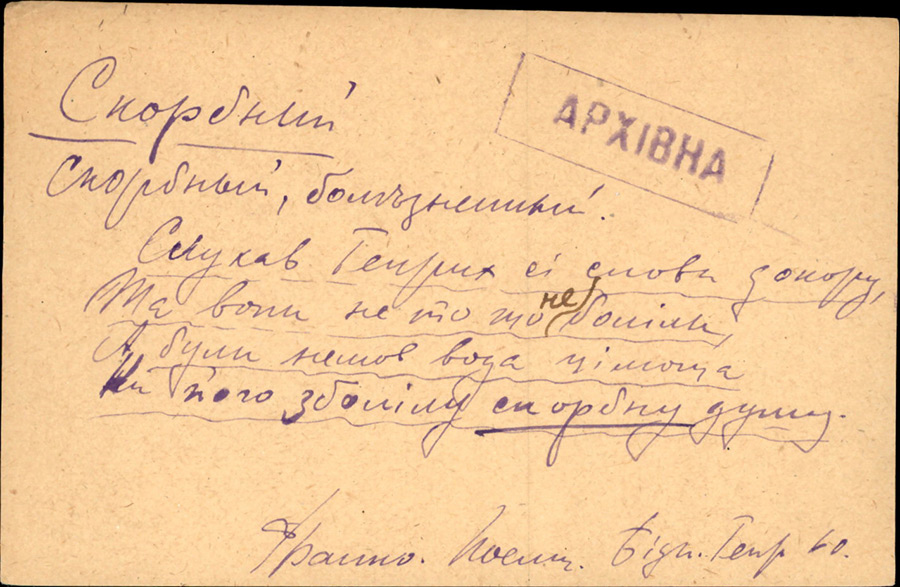 Скорбный
АРХІВНА
Скорбный, болѣзненный.
Слухав Генрих сі слова докору,
Та вони не то що не боліли,
А були немов вода цілюща
На його зболілу скорбну душу.
Франко. Поеми. Бідн. Генр 60.